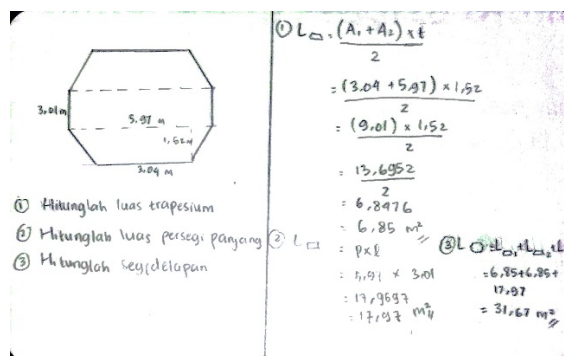 3,01 m
5.97 m
1,52 m
3,04 m
① Hitunglah luas trapesium
② Hitunglah luas persegi panjang
③ Hitunglah segidelapan
① L⏢ = (A₁ + A₂) × t
2
= (3.04 + 5,97) × 1,52
2
= (9,01) × 1,52
2
= 13,6952
2
= 6,8476
= 6,85 m²
② L▭ = p×l
= 5,97 × 3.01
= 17,9697
= 17,97 m²
③ L⯃ = L⏢₁ + L⏢₂ + L
= 6,85+6,85+
17,97
= 31,67 m²